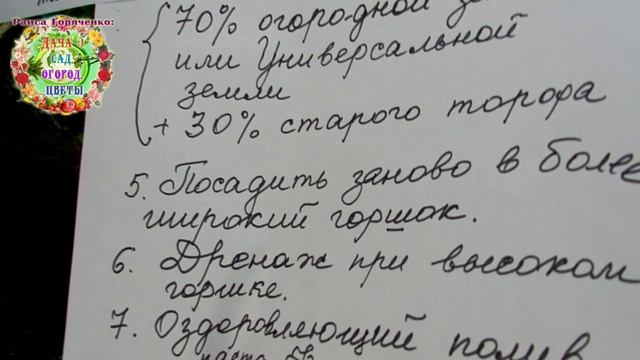 Раиса Горяченко:
ДАЧА
САД
ОГОРОД
ЦВЕТЫ
70% огородной
или Универсальной
земли
+ 30% старого торфа
5. Посадить заново в более
широкий горшок.
6. Дренаж при высоком
горшке.
7. Оздоровляющий полив